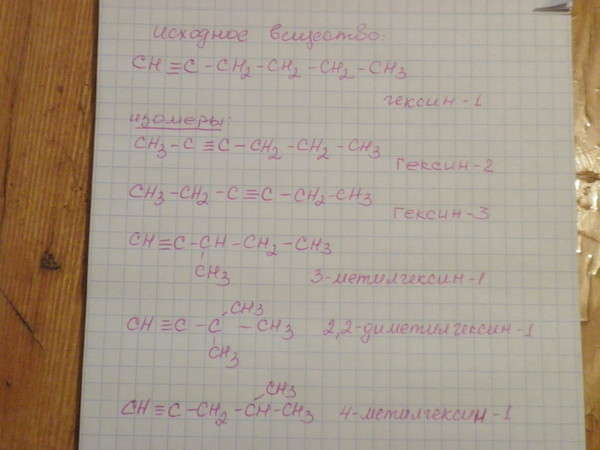 исходное вещество:
CH≡C-CH2-CH2-CH2-CH3
гексин-1
изомеры:
CH3-C≡C-CH2-CH2-CH3 гексин-2
CH3-CH2-C≡C-CH2-CH3 гексин-3
CH≡C-CH-CH2-CH3
CH3 3-метилгексин-1
CH3
CH≡C-C-CH3 2,2-диметилгексин-1
CH3
CH3
CH≡C-CH2-CH-CH3 4-металгексин-1